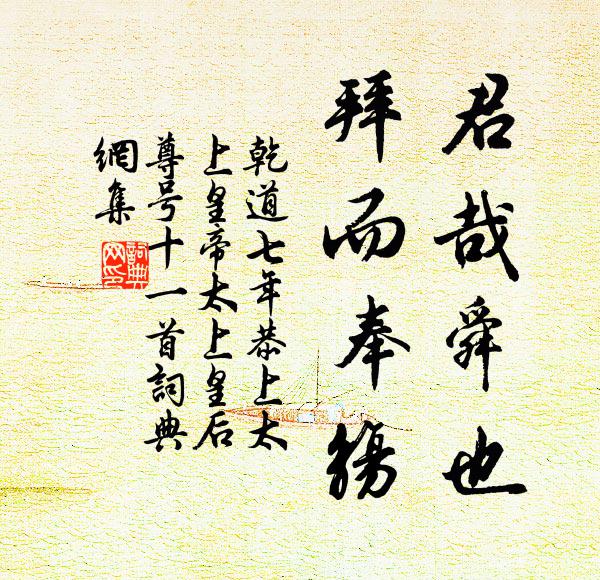 君哉舜也
拜而奉觴
乾道七年恭上太
上皇帝太上皇后
尊号十一首詞典
網集
詞典網印